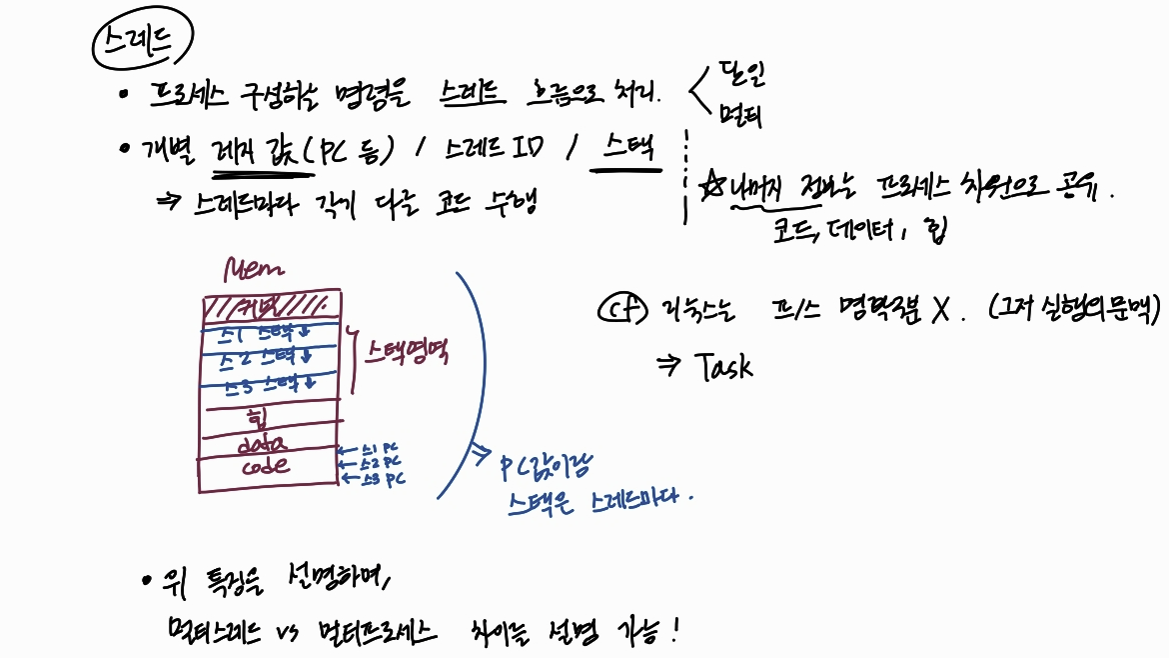 스레드
• 프로세스 구성하는 명령을 스레드 흐름으로 처리. < 단일
멀티
• 개별 레지 값(PC 등) / 스레드 ID / 스택
⇒ 스레드마다 각기 다른 코드 수행
☆ 나머지 정보는 프로세스 차원으로 공유.
코드, 데이터, 힙
Mem
커널
스1 스택↓
스2 스택↓
스3 스택↓
스택영역
힙
data
code
← 스1 PC
← 스2 PC
← 스3 PC
⇒ PC값이랑
스택은 스레드마다.
cf) 리눅스는 프/스 명확구분 X. (그저 실행의 문맥)
⇒ Task
• 위 특징을 설명하며,
멀티스레드 vs 멀티프로세스 차이를 설명 가능!